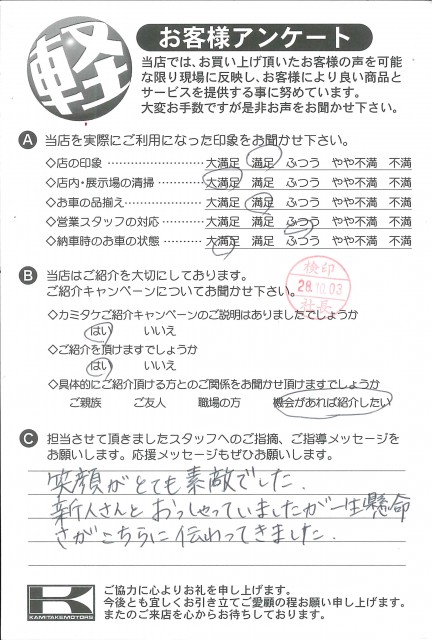 軽
お客様アンケート
当店では、お買い上げ頂いたお客様の声を可能
な限り現場に反映し、お客様により良い商品と
サービスを提供する事に努めています。
大変お手数ですが是非お声をお聞かせ下さい。
A 当店を実際にご利用になった印象をお聞かせ下さい。
◇店の印象 ………………… 大満足 満足 ふつう やや不満 不満
◇店内・展示場の清掃 ……… 大満足 満足 ふつう やや不満 不満
◇お車の品揃え ……………… 大満足 満足 ふつう やや不満 不満
◇営業スタッフの対応 ……… 大満足 満足 ふつう やや不満 不満
◇納車時のお車の状態 ……… 大満足 満足 ふつう やや不満 不満
B 当店はご紹介を大切にしてあります。
ご紹介キャンペーンについてお聞かせ下さい。
検印
28.10.03
社長
◇カミタケご紹介キャンペーンのご説明はありましたでしょうか
はい いいえ
◇ご紹介を頂けますでしょうか
はい いいえ
◇具体的にご紹介頂ける方とのご関係をお聞かせ頂けますでしょうか
ご親族 ご友人 職場の方 機会があれば紹介したい
C 担当させて頂きましたスタッフへのご指摘、ご指導メッセージを
お願いします。応援メッセージもぜひお願いします。
笑顔がとても素敵でした.
新人さんと おっしゃっていましたが一生懸命
さがこちらに伝わってきました.
K
KAMITAKEMOTORS
ご協力に心よりお礼を申し上げます。
今後とも宜しくお引き立てご愛顧の程お願い申し上げます。
またのご来店を心からお待ちしております。